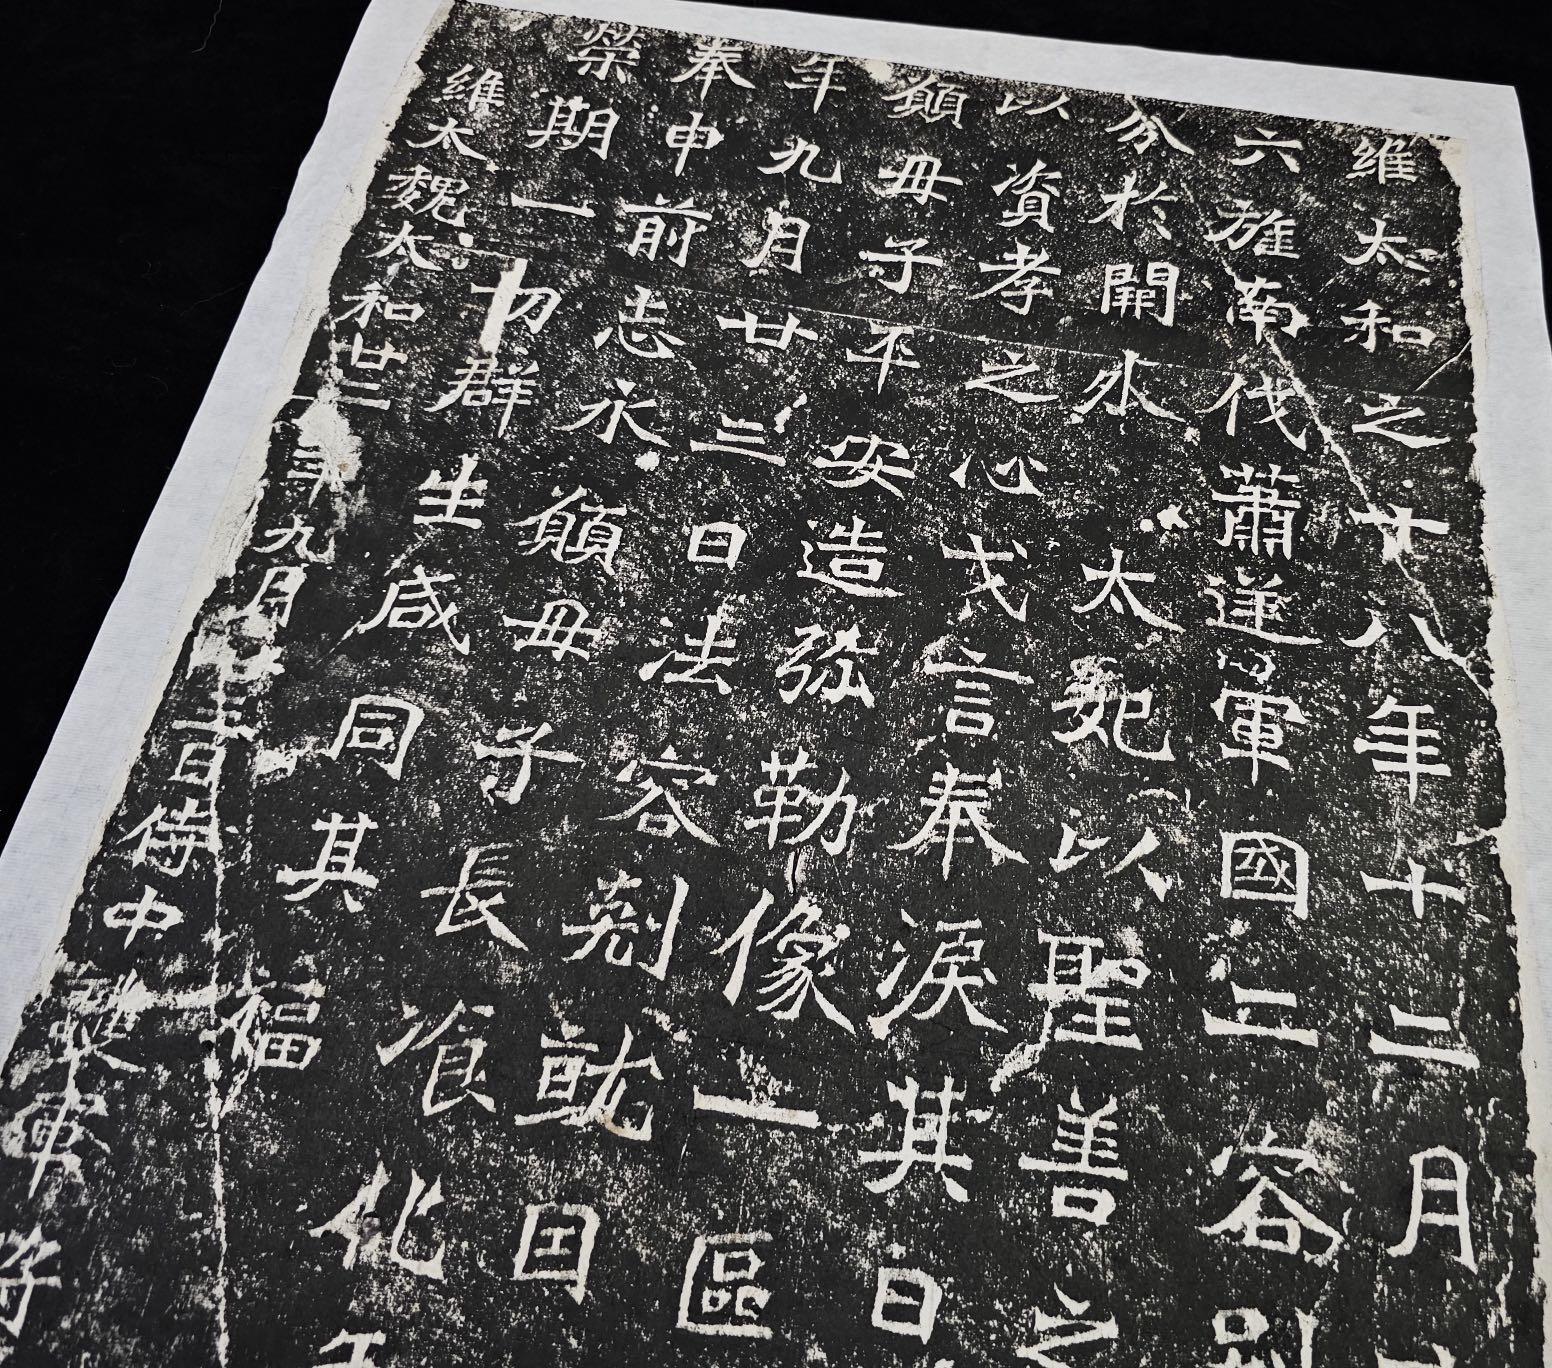 維太和之廿八年十二月
六旌南伐蕭逆軍國二容別
於闕外太妃以聖善之
以資孝之心戈言奉淚其日
願母子平安造弥勒像一區
年九月廿三日法容剋就因
奉申前志永願母子長飡化
榮期一切群生咸同其福
維太魏太和廿二年九月三日侍中軍將